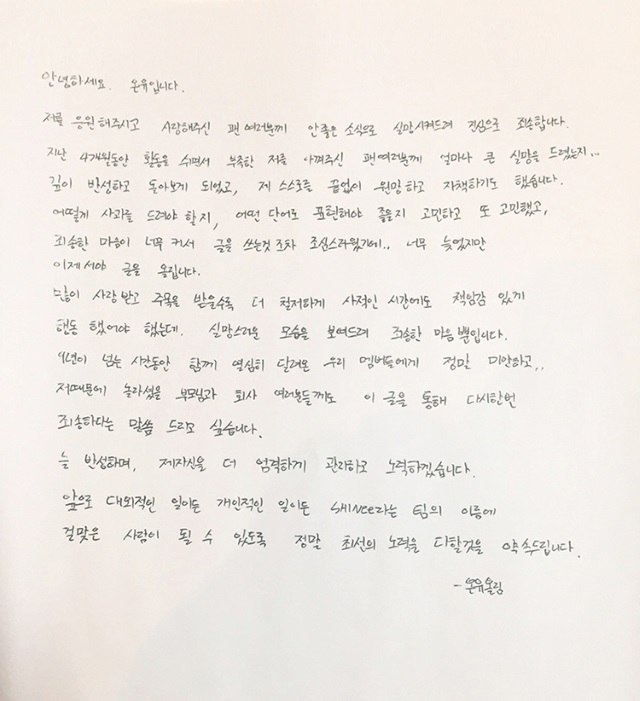 안녕하세요. 온유입니다.
저를 응원해주시고 사랑해주신 팬 여러분께 안좋은 소식으로 실망시켜드려 진심으로 죄송합니다.
지난 4개월동안 활동을 쉬면서 부족한 저를 아껴주신 팬여러분께 얼마나 큰 실망을 드렸는지...
깊이 반성하고 돌아보게 되었고, 제 스스로를 끊임없이 원망하고 자책하기도 했습니다.
어떻게 사과를 드려야 할지, 어떤 단어로 표현해야 좋을지 고민하고 또 고민했고,
죄송한 마음이 너무 커서 글을 쓰는것 조차 조심스러웠기에.. 너무 늦었지만
이제서야 글을 올립니다.
많이 사랑받고 주목을 받을수록 더 철저하게 사적인 시간에도 책임감 있게
행동 했어야 했는데. 실망스러운 모습을 보여드려 죄송한 마음 뿐입니다.
9년이 넘는 시간동안 함께 열심히 달려온 우리 멤버들에게 정말 미안하고,,
저때문에 놀라셨을 부모님과 회사 여러분들께도 이 글을 통해 다시한번
죄송하다는 말씀 드리고 싶습니다.
늘 반성하며, 제자신을 더 엄격하게 관리하고 노력하겠습니다.
앞으로 대외적인 일이든 개인적인 일이든 SHINee라는 팀의 이름에
걸맞은 사람이 될 수 있도록 정말 최선의 노력을 다할것을 약속드립니다.
-온유올림